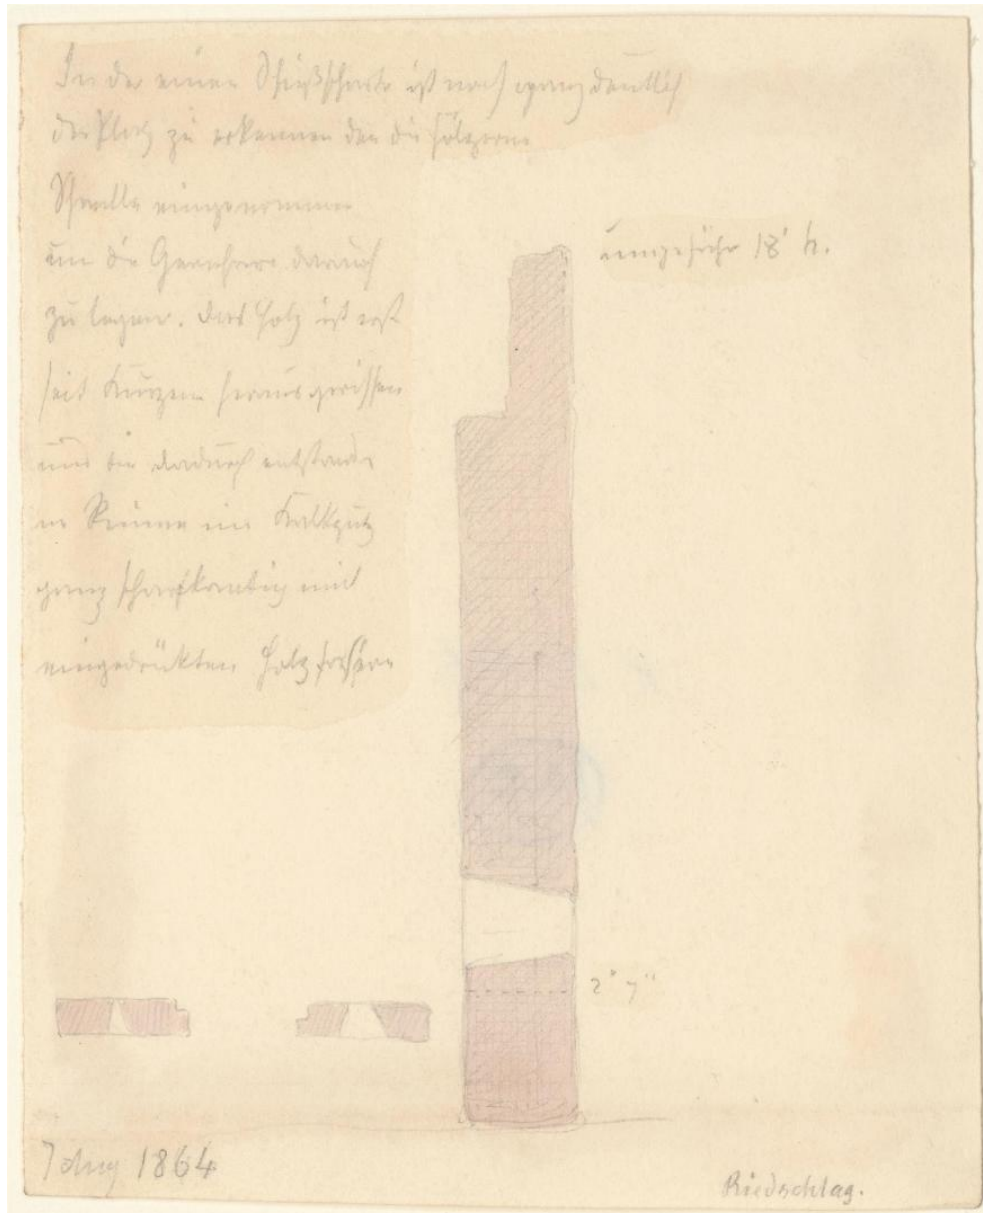 In der einen Schießscharte ist noch ganz deutlich
der Platz zu erkennen den die hölzerne
Schwelle eingenommen
um die Gewehre darauf
zu legen. Das Holz ist erst
seit Kurzem herausgerissen
und die dadurch entstande
ne Rinne im Kalkputz
ganz scharfkantig mit
eingedrükten Holzfasern
ungefähr 18' h.
2' 7"
7 Aug 1864
Riedschlag.